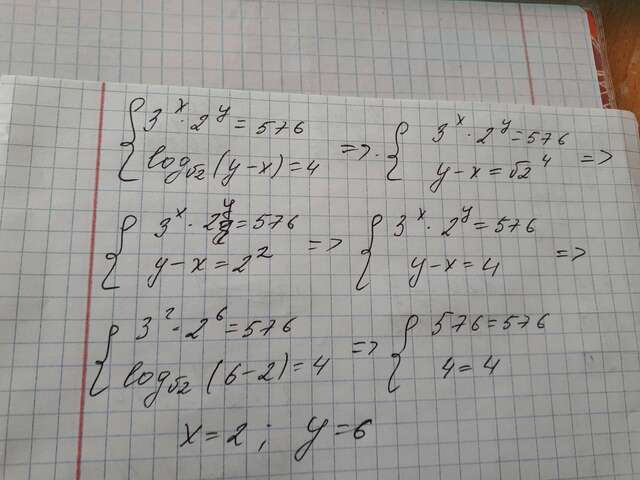 { 3^x · 2^y = 576
log_√2 (y-x) = 4 => { 3^x · 2^y = 576
y-x = √2^4 =>
{ 3^x · 2^y = 576
y-x = 2^2 => { 3^x · 2^y = 576
y-x = 4 =>
{ 3^2 · 2^6 = 576
log_√2 (6-2) = 4 => { 576 = 576
4 = 4
x = 2 ; y = 6